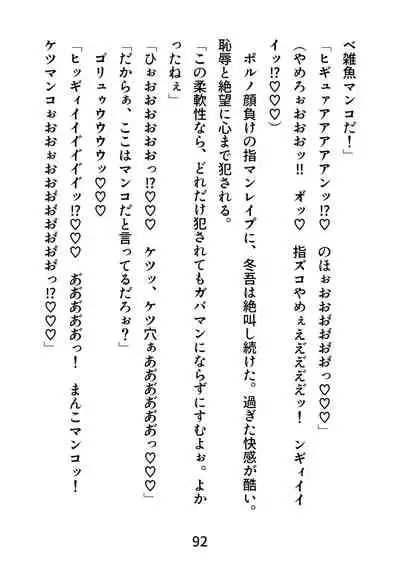 べ雑魚マンコだ！」
「ヒギュァアアアアアンッ!?♡　のほぉおおお゛お゛お゛お゛っ♡♡♡」
（やめろぉおおおッ!!　オ゛ッ♡　指ズコやめぇえ゛え゛え゛え゛ッ！　ンギィイイ
イッ!?♡♡♡）
ポルノ顔負けの指マンレイプに、冬吾は絶叫し続けた。過ぎた快感が酷い。
恥辱と絶望に心まで犯される。
「この柔軟性なら、どれだけ犯されてもガバマンにならずにすむよぉ。よか
ったねぇ」
「ひぉおおおおおおっ!?♡♡♡　ケツッ、ケツ穴ぁあ゛あ゛あ゛あ゛あ゛っ♡♡♡」
「だからぁ、ここはマンコだと言ってるだろぉ？」
ゴリュゥウウウウッ♡♡♡
「ヒッギィイイイ゛イ゛イ゛イ゛ッ!?♡♡♡　あ゛あ゛あ゛あ゛あ゛っ！　まんこマンコッ！
ケツマンコぉおおぉおお゛お゛お゛お゛お゛お゛お゛っ!?♡♡♡」
92